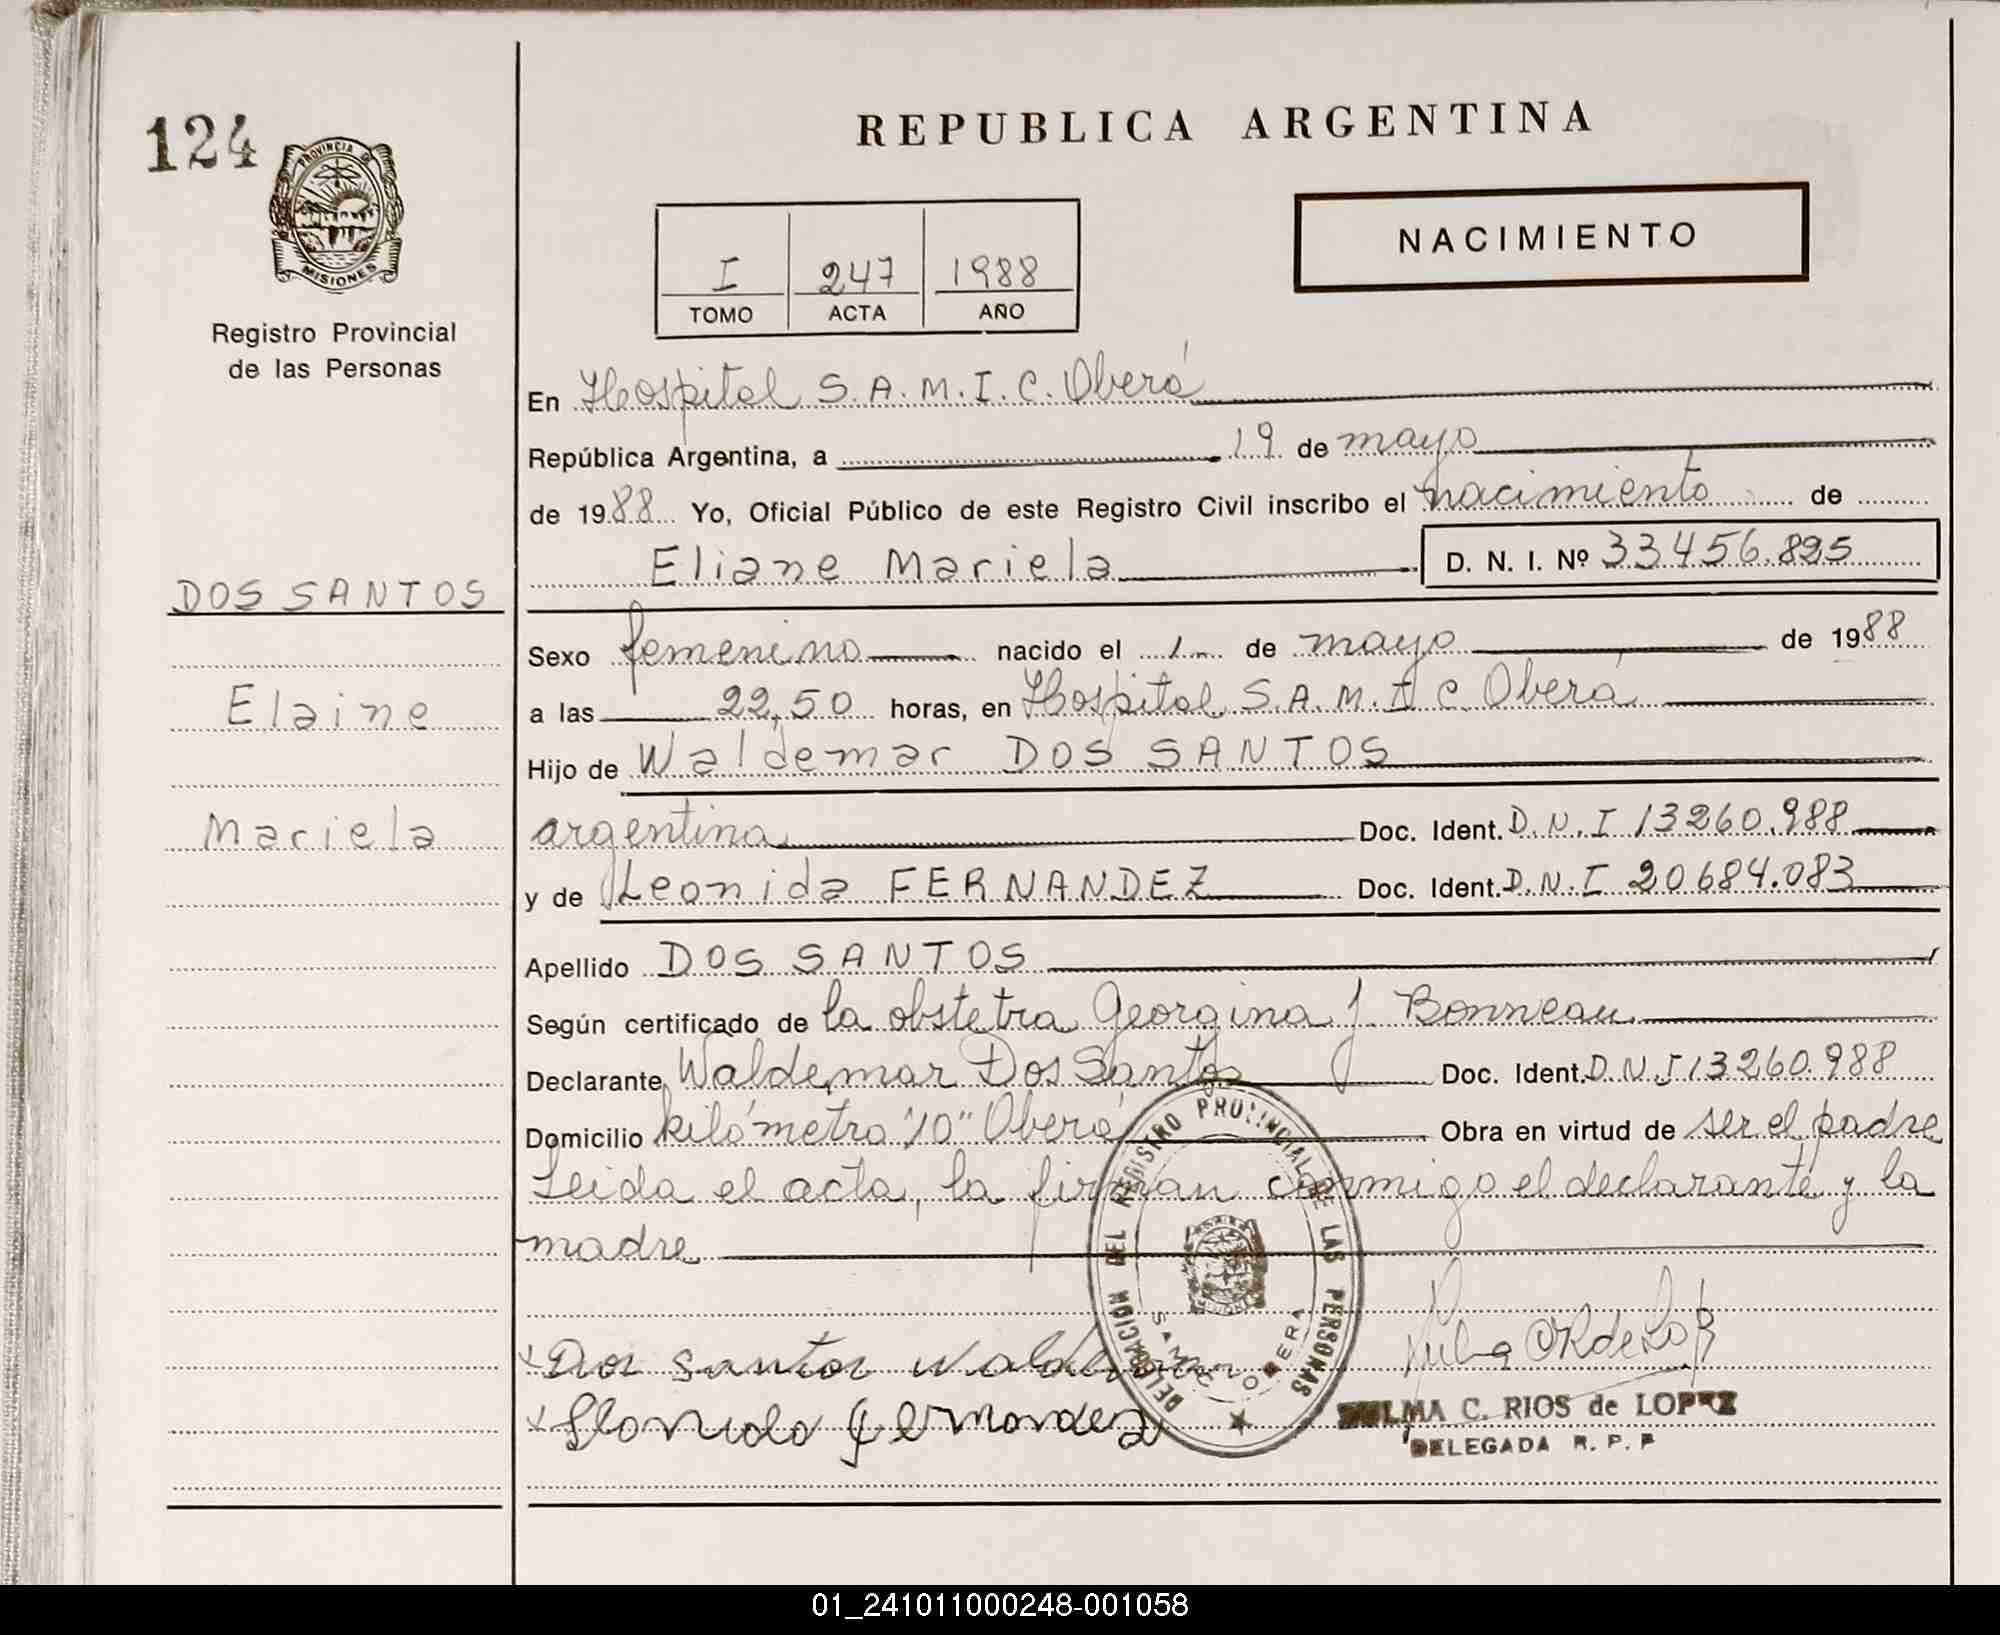 124
PROVINCIA DE
MISIONES
Registro Provincial
de las Personas
DOS SANTOS
Elaine
Mariela
REPUBLICA ARGENTINA
NACIMIENTO
I 247 1988
TOMO ACTA AÑO
En Hospital S.A.M.I.C. Oberá
República Argentina, a 19 de mayo
de 1988 Yo, Oficial Público de este Registro Civil inscribo el nacimiento de
Eliane Mariela D. N. I. Nº 33456.895
Sexo femenino nacido el 1 de mayo de 1988
a las 22,50 horas, en Hospital S.A.M.I.C. Oberá
Hijo de Waldemar DOS SANTOS
argentina Doc. Ident. D.N.I 13260.988
y de Leonida FERNANDEZ Doc. Ident. D.N.I 20684.083
Apellido DOS SANTOS
Según certificado de la obstetra Georgina J. Bonneau
Declarante Waldemar Dos Santos Doc. Ident. D.N.I 13260.988
Domicilio kilómetro "10" Oberá Obra en virtud de ser el padre
Leida el acta, la firman conmigo el declarante y la
madre
DELEGACION DEL REGISTRO PROVINCIAL DE LAS PERSONAS
SAMIC OBERA
Dos santos waldemar
Leonida Fernandez
ZULMA C. RIOS de LOPEZ
DELEGADA R. P. P
01_241011000248-001058